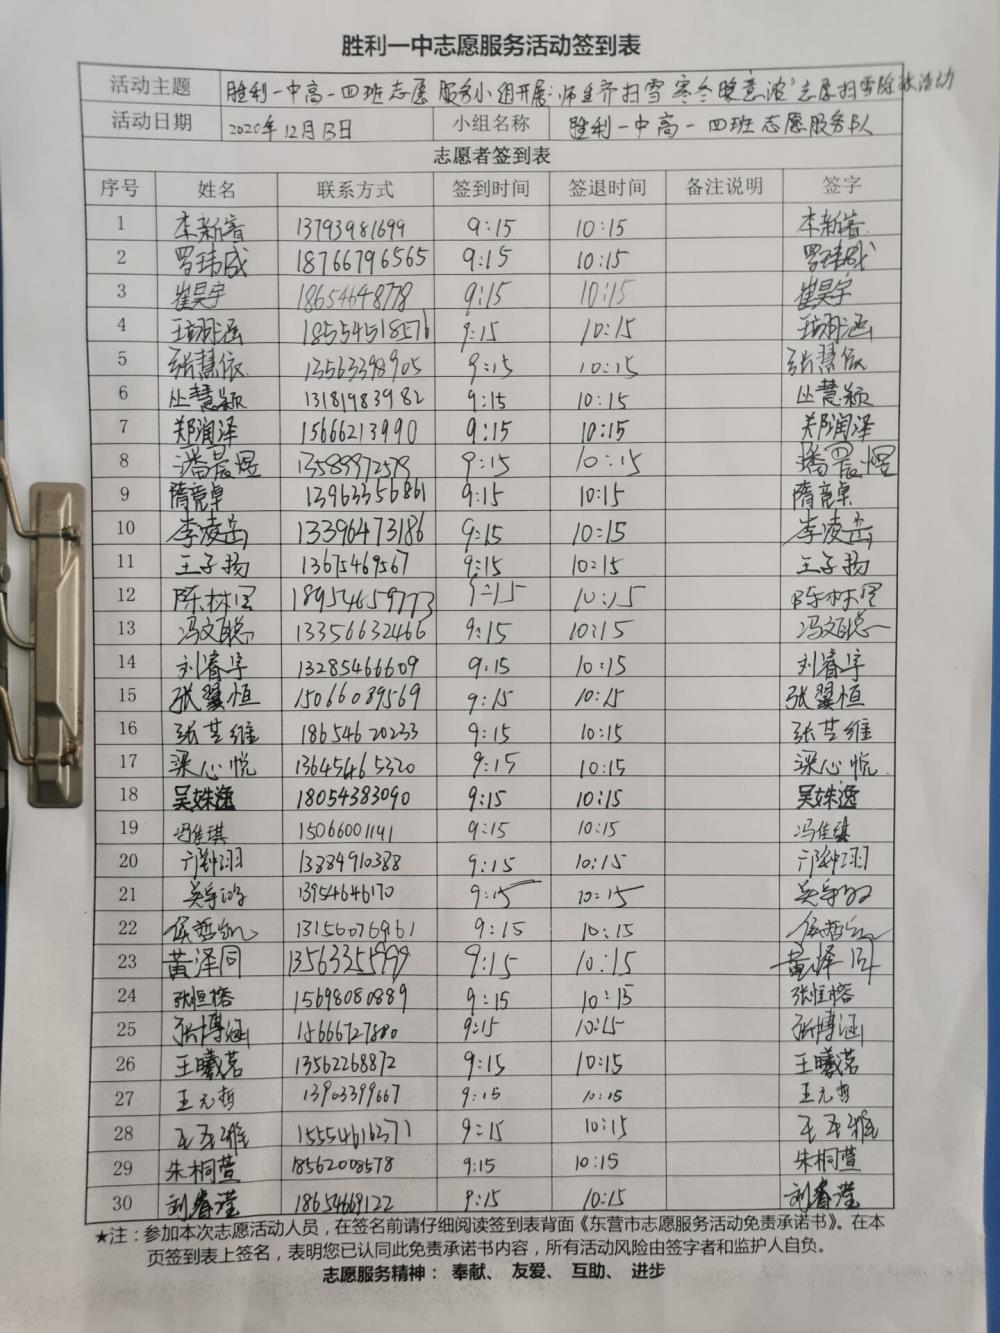 胜利一中志愿服务活动签到表
活动主题 胜利一中高一四班志愿服务小组开展"师生齐扫雪 寒冬暖意浓"志愿扫雪除冰活动
活动日期 2020年12月13日 小组名称 胜利一中高一四班志愿服务队
志愿者签到表
序号 姓名 联系方式 签到时间 签退时间 备注说明 签字
1 李新睿 13793981699 9:15 10:15 李新睿
2 罗玮成 18766796565 9:15 10:15 罗玮成
3 崔昊宇 18654648778 9:15 10:15 崔昊宇
4 18554518576 9:15 10:15
5 张慧依 13563398905 9:15 10:15 张慧依
6 丛慧颖 13181983982 9:15 10:15 丛慧颖
7 郑润泽 15666213990 9:15 10:15 郑润泽
8 潘晨煜 13589972579 9:15 10:15 潘晨煜
9 隋竞卓 13963356861 9:15 10:15 隋竞卓
10 李凌岳 13396473186 9:15 10:15 李凌岳
11 王子扬 13675469567 9:15 10:15 王子扬
12 18954659773 9:15 10:15
13 冯文聪 13356632466 9:15 10:15 冯文聪
14 刘睿宇 13285466609 9:15 10:15 刘睿宇
15 张翼恒 15066089569 9:15 10:15 张翼恒
16 张芸维 18654620233 9:15 10:15 张芸维
17 梁心悦 13645465320 9:15 10:15 梁心悦
18 吴姝逸 18054383090 9:15 10:15 吴姝逸
19 冯佳琪 15066001141 9:15 10:15 冯佳琪
20 13884910388 9:15 10:15
21 13954646170 9:15 10:15
22 侯哲凯 13156076961 9:15 10:15 侯哲凯
23 黄泽同 13563355999 9:15 10:15 黄泽同
24 张恒榕 15698080889 9:15 10:15 张恒榕
25 张博涵 15666727880 9:15 10:15 张博涵
26 王曦茗 13562268872 9:15 10:15 王曦茗
27 王元哲 13903399667 9:15 10:15 王元哲
28 王玉雅 15554616271 9:15 10:15 王玉雅
29 朱桐萱 18562008578 9:15 10:15 朱桐萱
30 刘睿滢 18654669122 9:15 10:15 刘睿滢
★注：参加本次志愿活动人员，在签名前请仔细阅读签到表背面《东营市志愿服务活动免责承诺书》。在本
页签到表上签名，表明您已认同此免责承诺书内容，所有活动风险由签字者和监护人自负。
志愿服务精神： 奉献、 友爱、 互助、 进步